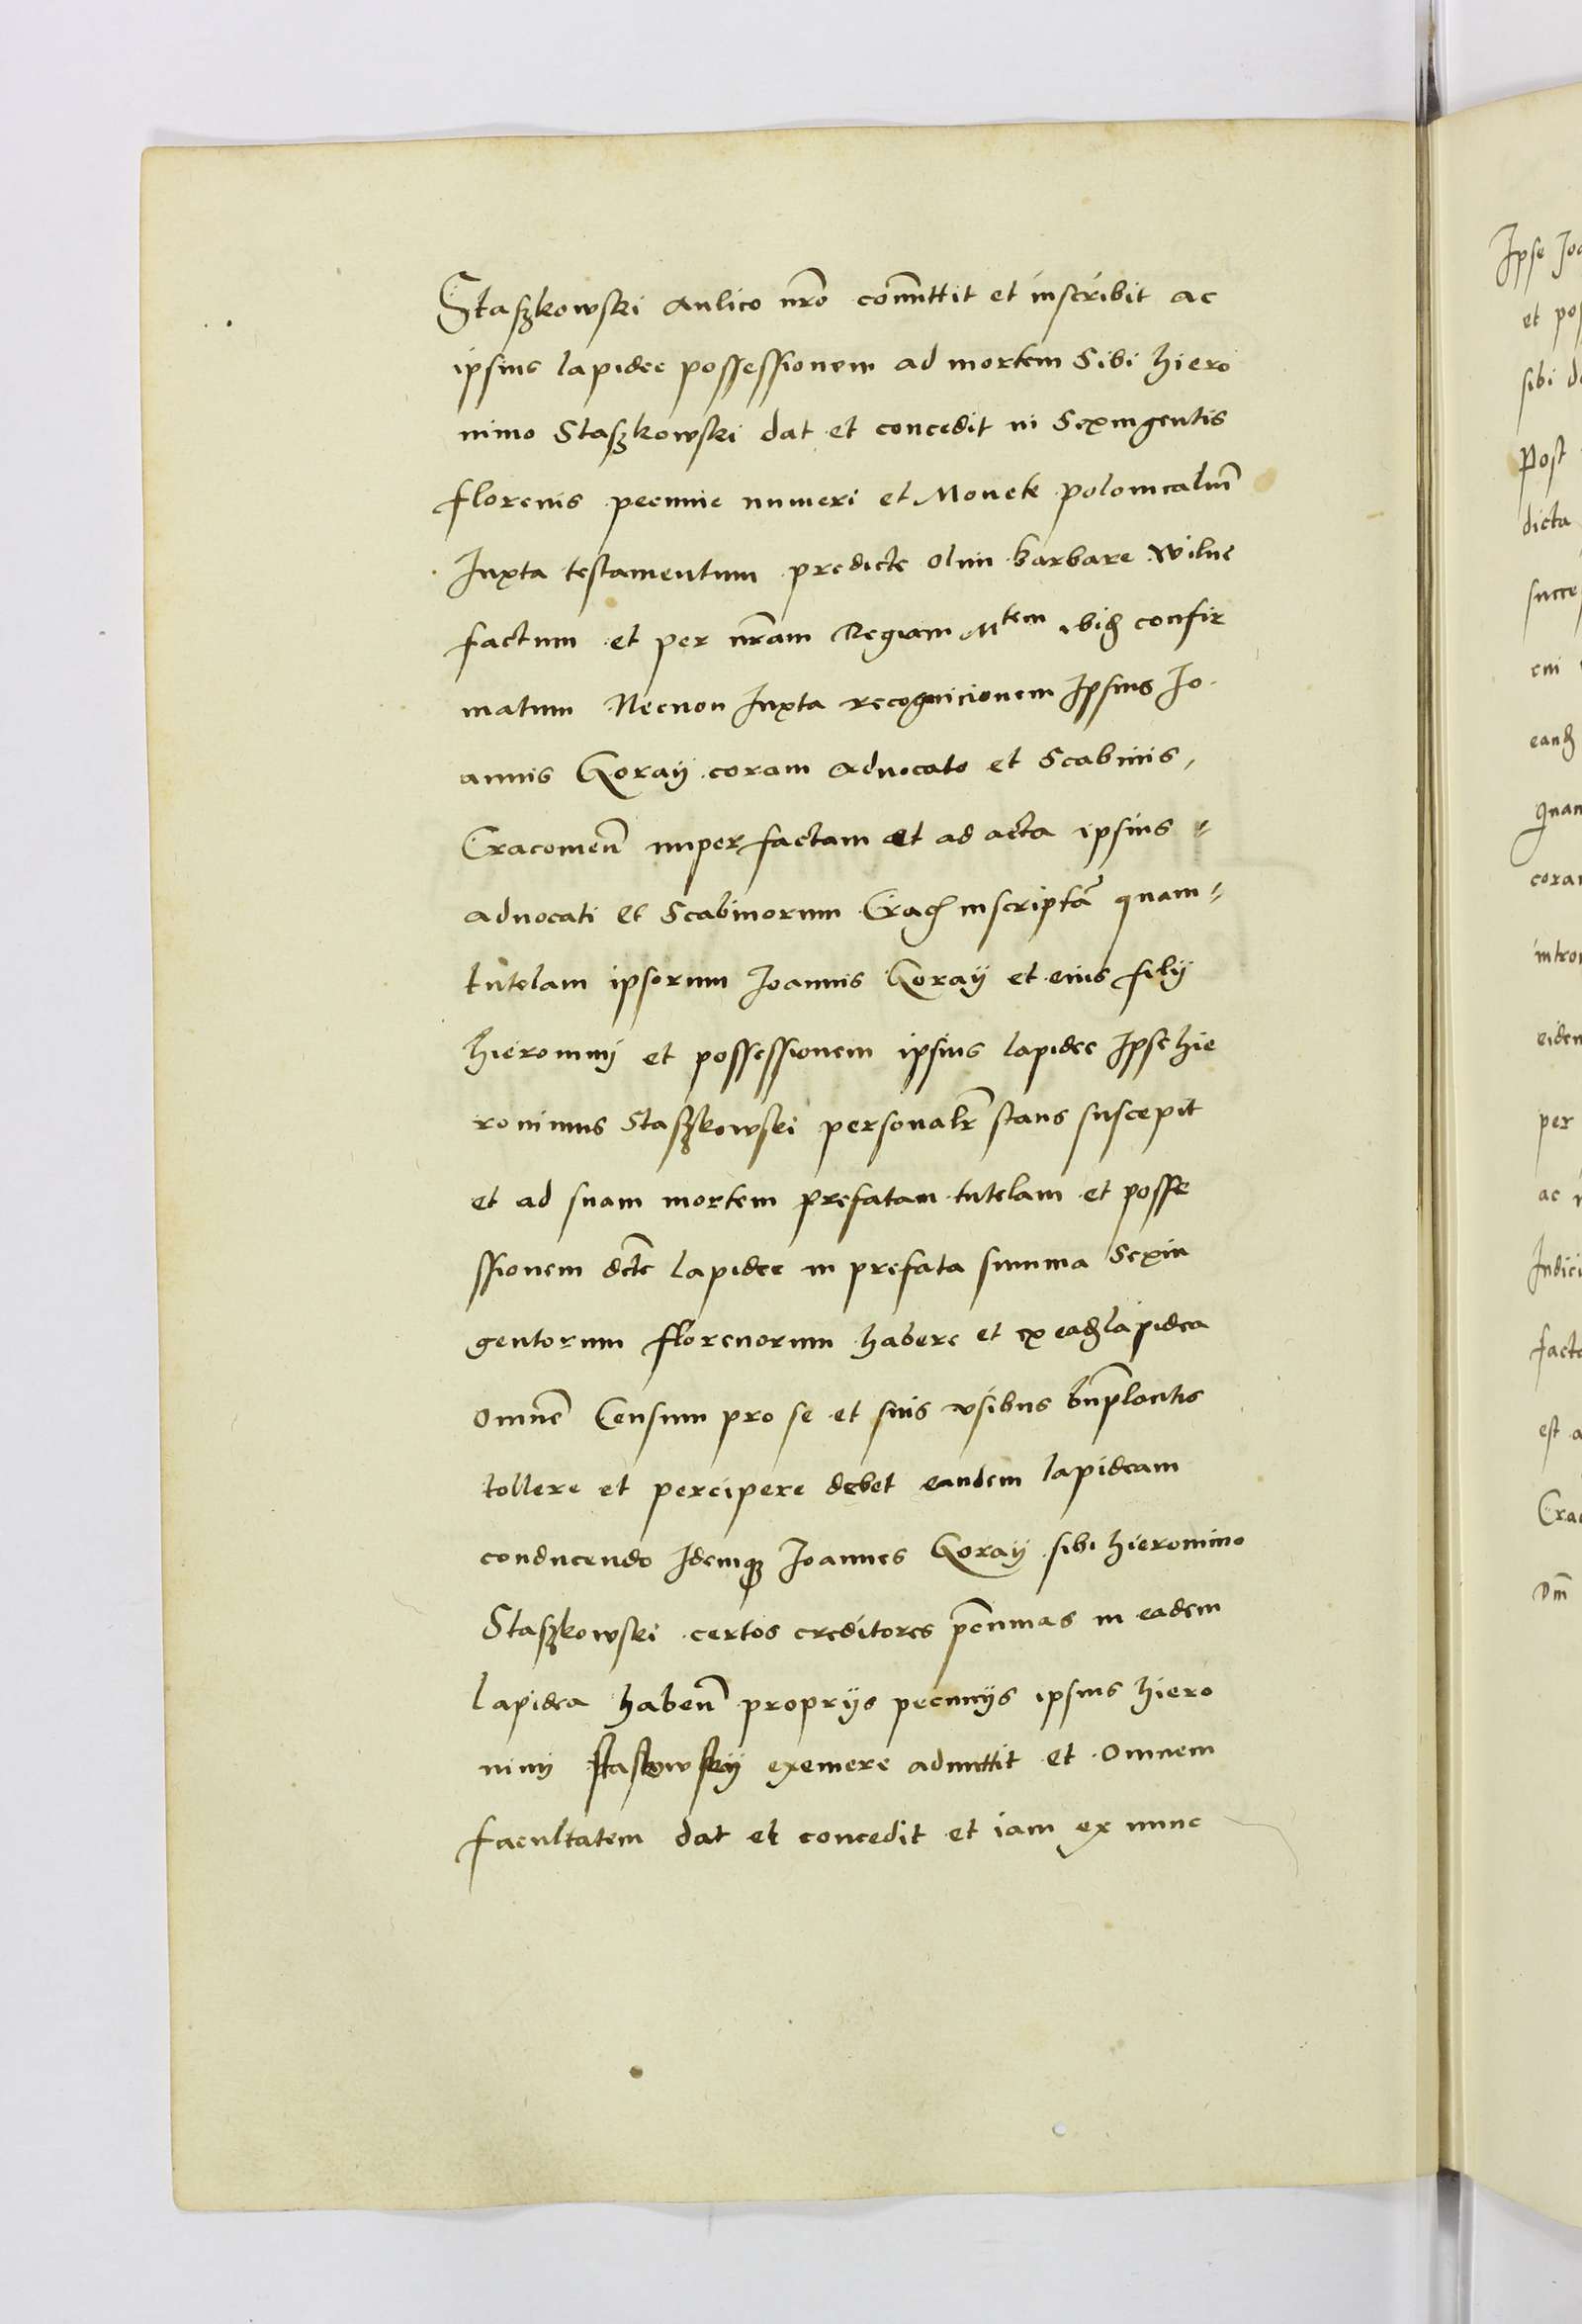 Staszkowski aulico nr̃o com̃ittit et inscribit ac
ipsius lapidee possessionem ad mortem Sibi hiero
nimo Staszkowski dat et concedit in Sexingentis
florenis pecunie numeri et Monete polonicaliũ
Iuxta testamentum predicte olim barbare Wilne
factum et per nr̃am Regiam Mtem ibiđ confir
matum Necnon Iuxta recognicionem Ipsius Io
annis Goraÿ coram Advocato et Scabinis,
Cracovieñ nuper factam et ad acta ipsius
advocati et Scabinorum Crac̃ inscriptã quam
tutelam ipsorum Joannis Goraÿ et eius filÿ
hieronimi et possessionem ipsius lapidee Ipse hie
ronimus Staszkowski personalr̃ stans suscepit
et ad suam mortem prefatam tutelam et posse
ssionem dc̃te lapidee in prefata summa Sexin
gentorum florenorum habere et ex eađ lapidea
omnẽ Censum pro se et suis usibus bñplacitis
tollere et percipere debet eandem lapideam
conducendo Idemqꝫ Joannes Goraÿ sibi hieronimo
Staszkowski certos creditores pecunias in eadem
lapidea habeñ proprÿs pecunÿs ipsius hiero
nimi staskowskÿ exemere admittit et omnem
facultatem dat et concedit et iam ex nunc
Ipse
et
sibi
Post
dicta
cui
eanđ
eidem
per
ac
est